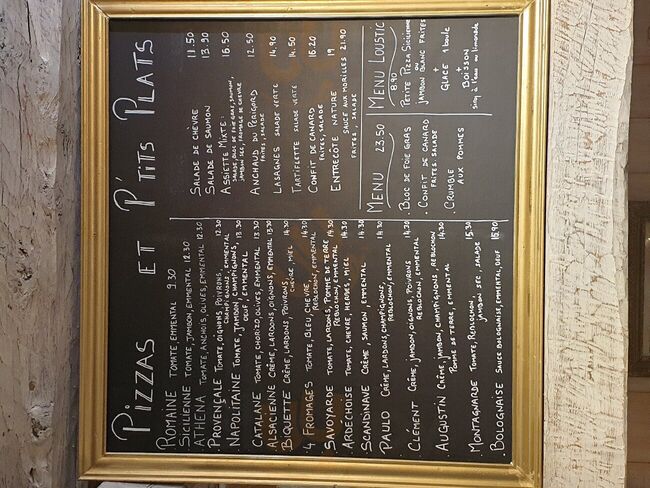 PIZZAS ET P'TITS PLATS
ROMAINE TOMATE, EMMENTAL 9.30
SICILIENNE TOMATE, JAMBON, EMMENTAL 12.30
ATHENA TOMATE, ANCHOIS, OLIVES, EMMENTAL 12.30
PROVENÇALE TOMATE, OIGNONS, POIVRONS, 12.30
CHAMPIGNONS, EMMENTAL
NAPOLITAINE TOMATE, JAMBON, CHAMPIGNONS, 13.30
OEUF, EMMENTAL
CATALANE TOMATE, CHORIZO, OLIVES, EMMENTAL 13.30
ALSACIENNE CRÈME, LARDONS, OIGNONS, EMMENTAL 13.30
BIQUETTE CRÈME, LARDONS, POIVRONS, 14.30
CHÈVRE, MIEL
4 FROMAGES TOMATE, BLEU, CHEVRE, 14.30
REBLOCHON, EMMENTAL
SAVOYARDE TOMATE, LARDONS, POMME DE TERRE 14.30
REBLOCHON, EMMENTAL
ARDECHOISE TOMATE, CHEVRE, HERBES, MIEL 14.30
SCANDINAVE CRÈME, SAUMON, EMMENTAL 14.30
PAULO CRÈME, LARDONS, CHAMPIGNONS, 14.30
REBLOCHON, EMMENTAL
CLEMENT CRÈME, JAMBON, OIGNONS, POIVRONS 14.30
REBLOCHON, EMMENTAL
AUGUSTIN CRÈME, JAMBON, CHAMPIGNONS, REBLOCHON 14.30
POMME DE TERRE, EMMENTAL
MONTAGNARDE TOMATE, REBLOCHON, 15.30
JAMBON SEC, SALADE
BOLOGNAISE SAUCE BOLOGNAISE, EMMENTAL, OEUF 15.90
SALADE DE CHEVRE 11.50
SALADE DE SAUMON 13.90
ASSIETTE MIXTE: 16.50
SALADE, BLOC DE FOIE GRAS, SAUMON,
JAMBON SEC, FROMAGE DE CHEVRE
ANCHAUD DU PERIGORD 12.50
FRITES, SALADE
LASAGNES SALADE VERTE 14.90
TARTIFLETTE SALADE VERTE 14.50
CONFIT DE CANARD 16.20
FRITES, SALADE
ENTRECÔTE NATURE 19
SAUCE AUX MORILLES 21.90
FRITES, SALADE
MENU
23.50
. BLOC DE FOIE GRAS
. CONFIT DE CANARD
FRITES SALADE
. CRUMBLE
AUX POMMES
MENU LOUSTIC
8.90
PETITE PIZZA SICILIENNE
OU
JAMBON BLANC FRITES
+
GLACE 1 BOULE
+
BOISSON